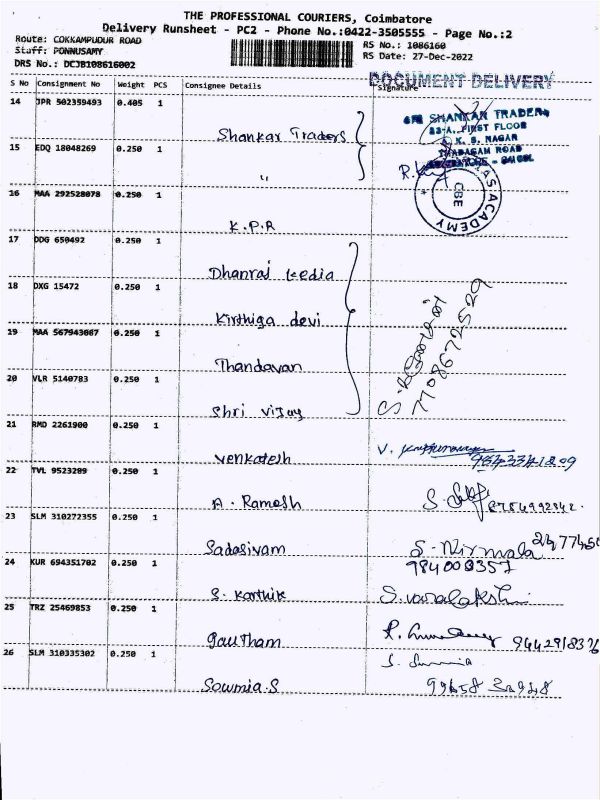 THE PROFESSIONAL COURIERS, Coimbatore
Delivery Runsheet - PC2 - Phone No.:0422-3505555 - Page No.:2
Route: COKKAMPUDUR ROAD
Staff: PONNUSAMY
DRS No.: DCJB108616002
RS No.: 1086160
RS Date: 27-Dec-2022
DOCUMENT DELIVERY
S No Consignment No Weight PCS Consignee Details Signature
14 JPR 502359493 0.405 1
Shankar Traders
SRI SHANKAR TRADERS
23-A, FIRST FLOOR
K. S. NAGAR
THADAGAM ROAD
15 EDQ 18048269 0.250 1
"
16 MAA 292528078 0.250 1
K.P.R
IAS ACADEMY
CBE
17 DDG 650492 0.250 1
Dhanraj kedia
18 DXG 15472 0.250 1
Kirthiga devi
19 MAA 567943067 0.250 1
Thandavan
20 VLR 5140783 0.250 1
Shri vijay
7708672529
21 RMD 2261900 0.250 1
venkatesh
22 TVL 9523209 0.250 1
A. Ramesh
23 SLM 310272355 0.250 1
Sadasivam S. Nirmala
24 KUR 694351702 0.250 1
S. Karthik S. varalakshmi
25 TRZ 25469853 0.250 1
gautham 9442918376
26 SLM 310335302 0.250 1
Sowmia.S